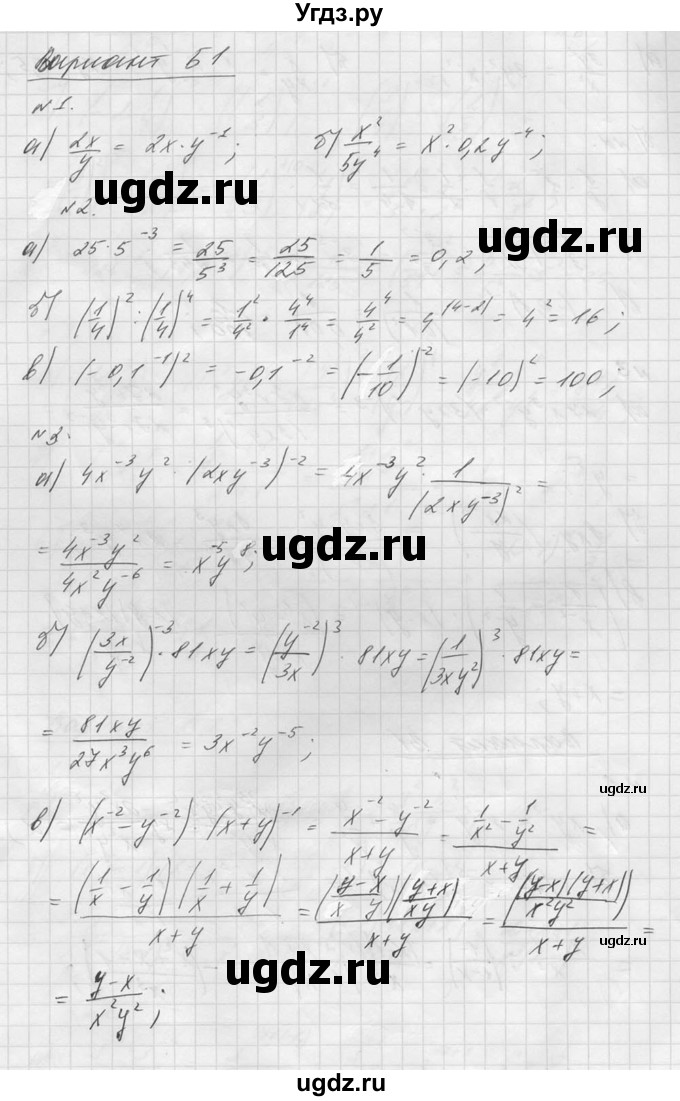 Угдз.ру
Вариант Б1
№1.
а) 2x/y = 2x·y⁻¹; б) x²/5y⁴ = x²·0,2y⁻⁴;
ugdz.ru ugdz.ru
№2.
а) 25·5⁻³ = 25/5³ = 25/125 = 1/5 = 0,2;
б) (1/4)² : (1/4)⁴ = 1²/4² · 4⁴/1⁴ = 4⁴/4² = 4⁽⁴⁻²⁾ = 4² = 16;
в) (-0,1⁻¹)² = -0,1⁻² = (-1/10)⁻² = (-10)² = 100;
ugdz.ru
№3.
а) 4x⁻³y² · (2xy⁻³)⁻² = 4x⁻³y² · 1/(2xy⁻³)² =
= 4x⁻³y²/4x²y⁻⁶ = x⁻⁵y⁸;
ugdz.ru
б) (3x/y⁻²)⁻³ · 81xy = (y⁻²/3x)³ · 81xy = (1/3xy²)³ · 81xy =
= 81xy/27x³y⁶ = 3x⁻²y⁻⁵;
ugdz.ru
ugdz.ru
в) (x⁻² - y⁻²) · (x+y)⁻¹ = (x⁻² - y⁻²)/(x+y) = (1/x² - 1/y²)/(x+y) =
= (1/x - 1/y)(1/x + 1/y)/(x+y) = ((y-x)/(x y))((y+x)/(xy))/(x+y) = ((y-x)(y+x)/(x²y²))/(x+y) =
ugdz.ru
ugdz.ru
= (y-x)/(x²y²);
ugdz.ru